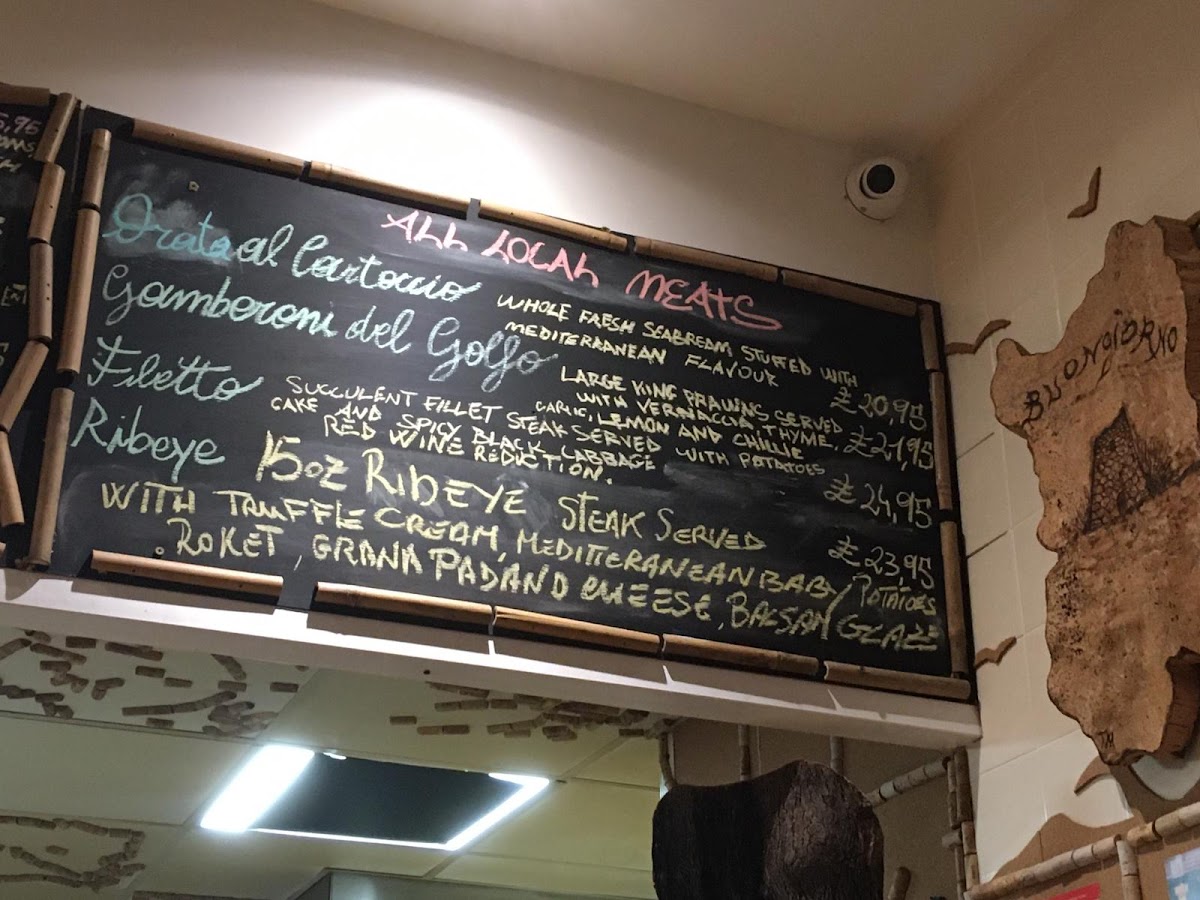 ALL LOCAL MEATS
Orata al Cartoccio WHOLE FRESH SEABREAM STUFFED WITH
MEDITERRANEAN FLAVOUR £20,95
Gamberoni del Golfo LARGE KING PRAWNS SERVED
WITH VERNACCIA, THYME,
GARLIC, LEMON AND CHILLIE £21,95
Filetto SUCCULENT FILLET STEAK SERVED WITH PATATOES
CAKE AND SPICY BLACK CABBAGE
RED WINE REDICTION. £24,95
Ribeye 15oz RIBEYE STEAK SERVED £23,95
WITH TRUFFLE CREAM, MEDITTERANEAN BABY POTATOES
.ROKET, GRANA PADANO CHEESE, BALSAM GLAZE
BUONGIORNO
5,95